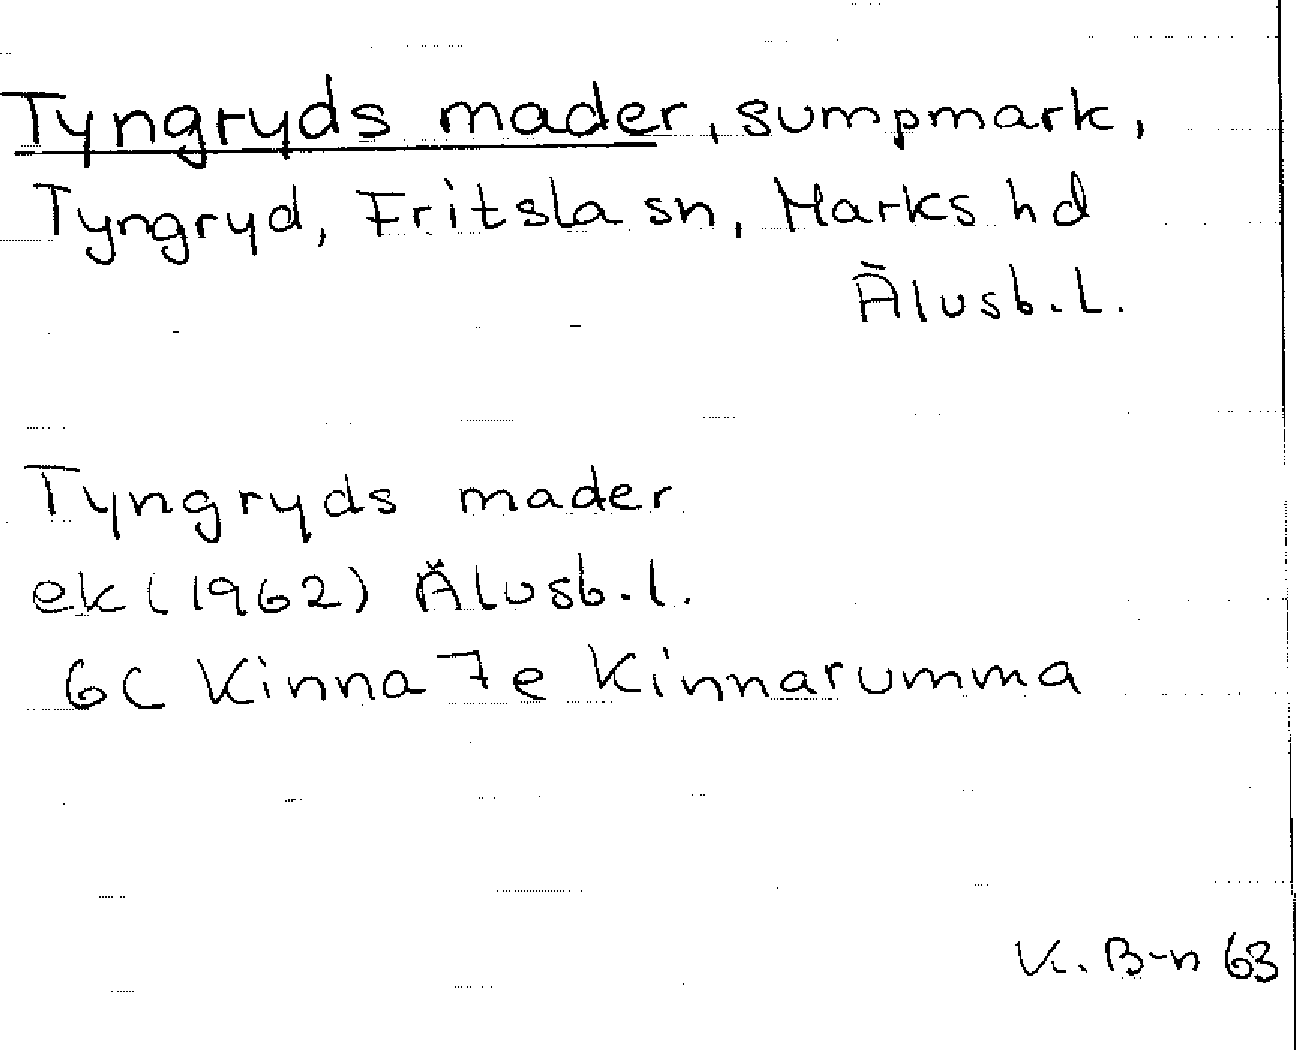 Tyngryds mader, sumpmark,
Tyngryd, Fritsla sn, Marks hd
Älvsb.l.
Tyngryds mader
ek (1962) Älvsb.l.
6C Kinna 7e Kinnarumma
K. B-n 63